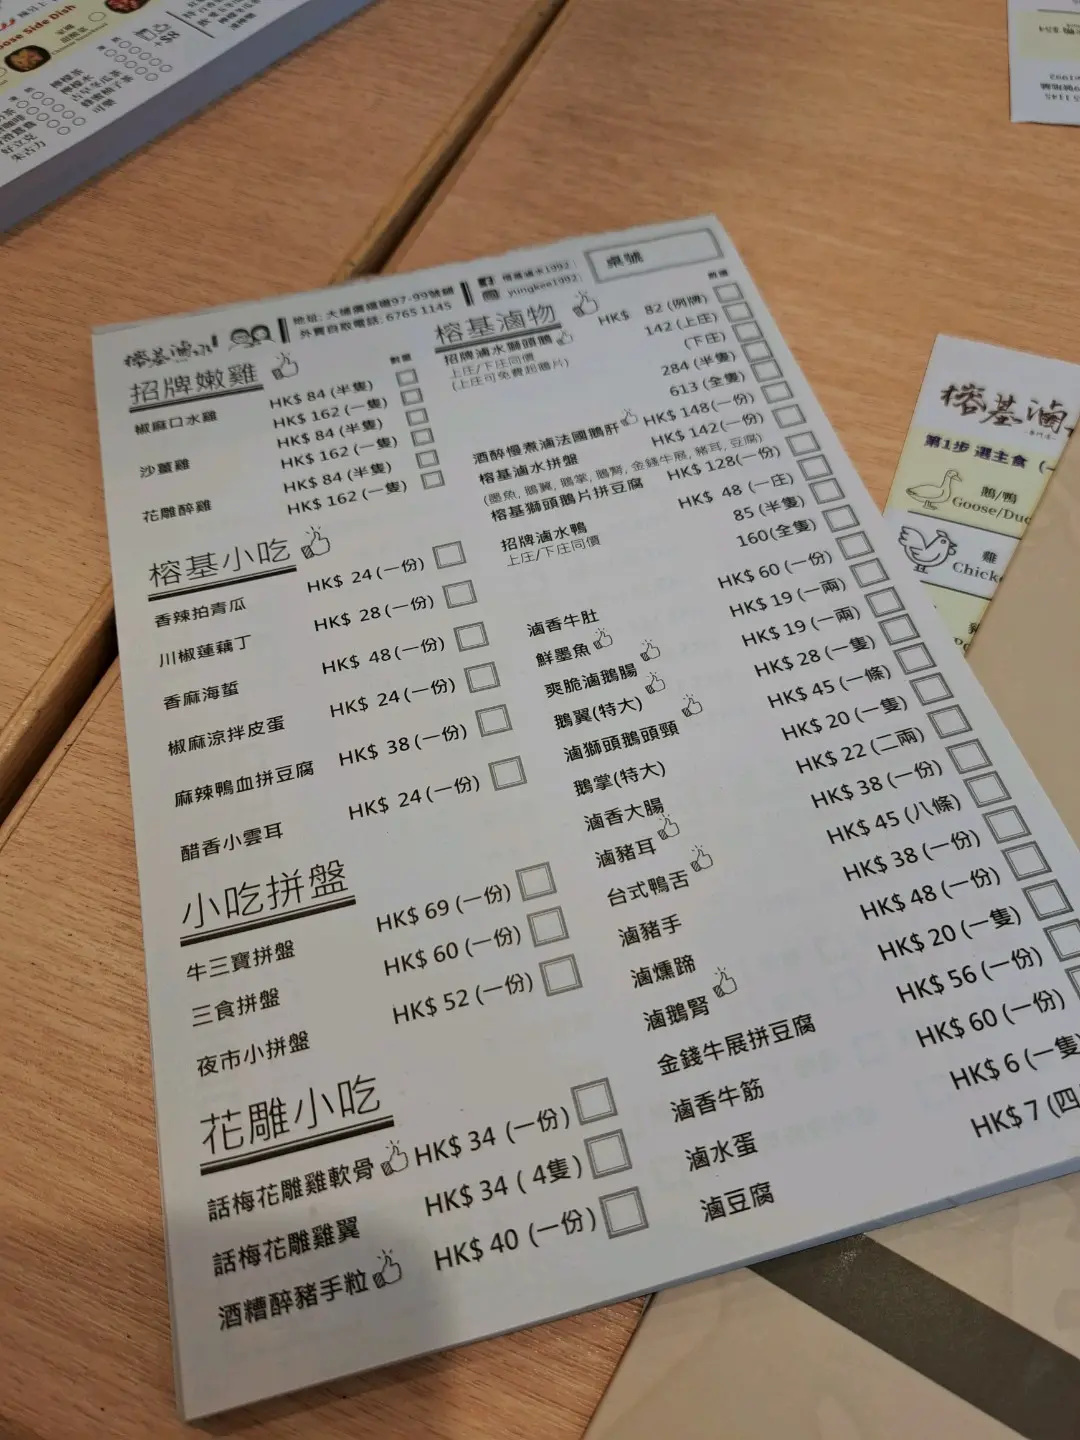 榕基滷水
地址: 大埔廣福道97-99號舖
外賣自取電話: 6765 1145
榕基滷水1992
yungkee1992
桌號
招牌嫩雞
數量
椒麻口水雞
HK$ 84 (半隻)
HK$ 162 (一隻)
沙薑雞
HK$ 84 (半隻)
HK$ 162 (一隻)
花雕醉雞
HK$ 84 (半隻)
HK$ 162 (一隻)
榕基小吃
香辣拍青瓜 HK$ 24 (一份)
川椒蓮藕丁 HK$ 28 (一份)
香麻海蜇 HK$ 48 (一份)
椒麻涼拌皮蛋 HK$ 24 (一份)
麻辣鴨血拼豆腐 HK$ 38 (一份)
醋香小雲耳 HK$ 24 (一份)
小吃拼盤
牛三寶拼盤 HK$ 69 (一份)
三食拼盤 HK$ 60 (一份)
夜市小拼盤 HK$ 52 (一份)
花雕小吃
話梅花雕雞軟骨 HK$ 34 (一份)
話梅花雕雞翼 HK$ 34 ( 4隻)
酒糟醉豬手粒 HK$ 40 (一份)
榕基滷物
數量
招牌滷水獅頭鵝
上庄/下庄同價
(上庄可免費起腩片)
HK$ 82 (例牌)
142 (上庄)
(下庄)
284 (半隻)
613 (全隻)
酒醉慢煮滷法國鵝肝 HK$ 148(一份)
榕基滷水拼盤 HK$ 142(一份)
(墨魚, 鵝翼, 鵝掌, 鵝腎, 金錢牛展, 豬耳, 豆腐)
榕基獅頭鵝片拼豆腐 HK$ 128(一份)
招牌滷水鴨
上庄/下庄同價
HK$ 48 (一庄)
85 (半隻)
160(全隻)
滷香牛肚 HK$ 60 (一份)
鮮墨魚 HK$ 19 (一兩)
爽脆滷鵝腸 HK$ 19 (一兩)
鵝翼(特大) HK$ 28 (一隻)
滷獅頭鵝頭頸 HK$ 45 (一條)
鵝掌(特大) HK$ 20 (一隻)
滷香大腸 HK$ 22 (二兩)
滷豬耳 HK$ 38 (一份)
台式鴨舌 HK$ 45 (八條)
滷豬手 HK$ 38 (一份)
滷燻蹄 HK$ 48 (一份)
滷鵝腎 HK$ 20 (一隻)
金錢牛展拼豆腐 HK$ 56 (一份)
滷香牛筋 HK$ 60 (一份)
滷水蛋 HK$ 6 (一隻
滷豆腐 HK$ 7 (四
榕基滷
第1步 選主食
鵝/鴨
Goose/Duc
雞
Chick
Side Dish
+$8
檸檬茶
檸檬水
古皇冬瓜茶
蜂蜜柚子茶
可樂
好立克
朱古力